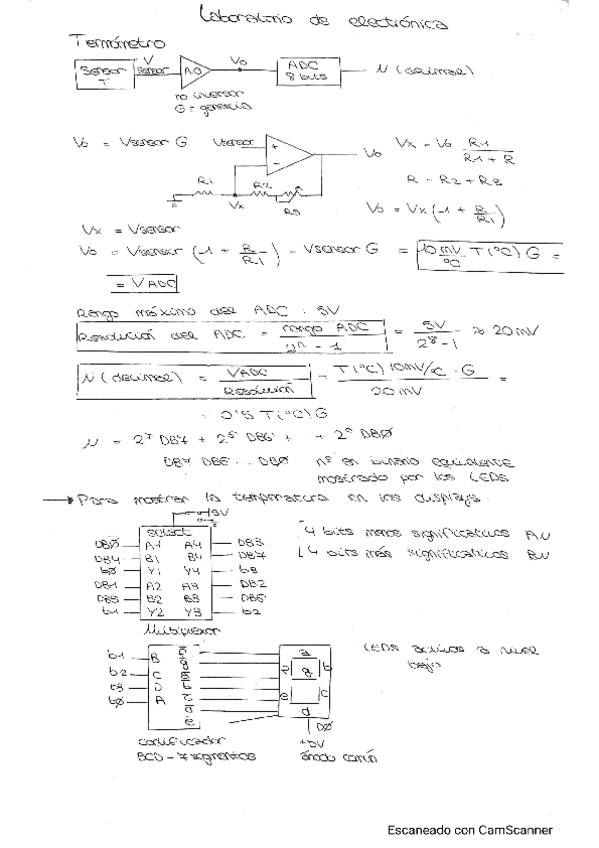 Laboratorio de electrónica
Termómetro
Sensor T
V sensor
AO
Vo
ADC 8 bits
N (decimal)
no inversor
G = ganancia
Vo = Vsensor G
Vsensor
+
-
Vo
R1
R2
Vx
Vx = Vo R1 / R1 + R
Vo = Vx (1 + R/R1)
Vx = Vsensor
Vo = Vsensor (1 + R/R1) = Vsensor G = 10 mV/ºC T(ºC) G =
= VADC
Rango máximo del ADC : 5V
Resolución del ADC = rango ADC / 2^n - 1 = 5V / 2^8 - 1 ≈ 20 mV
N (decimal) = VADC / Resolución = T(ºC) 10mV/ºC · G / 20 mV =
= 0'5 T(ºC) G
N = 2^7 DB7 + 2^6 DB6 + + 2^0 DB0
DB7 DB6 ... DB0 nº en binario equivalente
mostrado por los LEDS
→ Para mostrar la temperatura en los displays
5V
select
DB0 A1 A4 DB3
DB4 B1 B4 DB7
b0 Y1 Y4 b3
DB1 A2 A3 DB2
DB5 B2 B3 DB6
b1 Y2 Y3 b2
4 bits menos significativos AN
4 bits más significativos BN
Multiplexor
b1 B
b2 C
b3 D
b0 A
LEDS activos a nivel
bajo
+5V
codificador
BCD - 7 segmentos
ánodo común
Escaneado con CamScanner